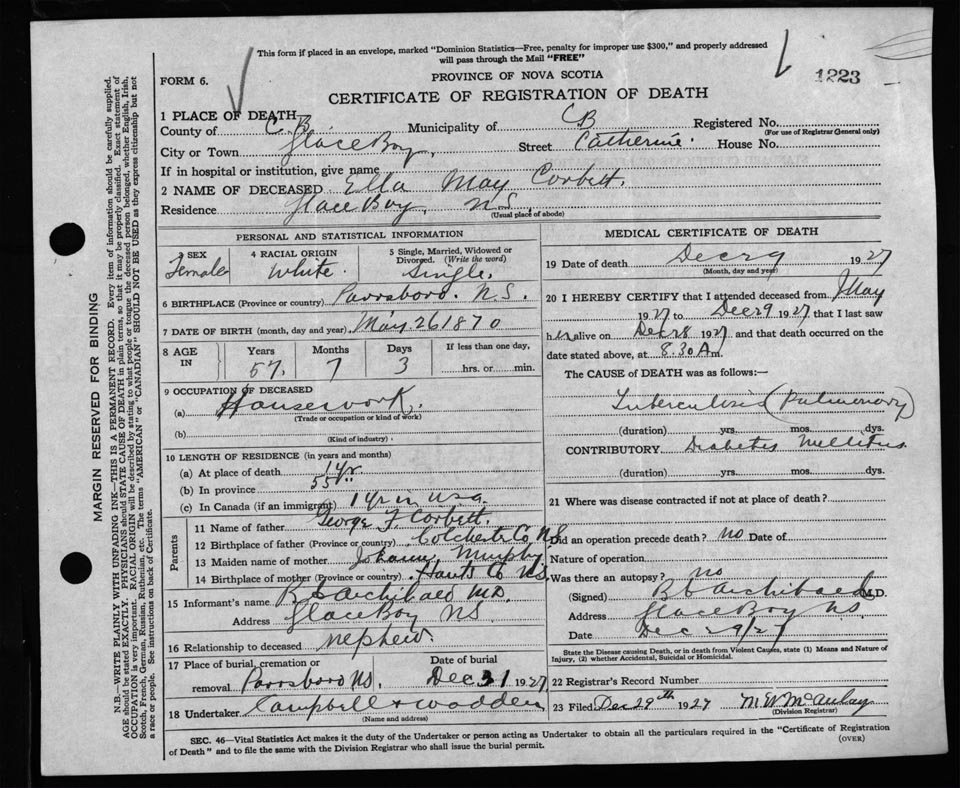 This form if placed in an envelope, marked "Dominion Statistics—Free, penalty for improper use $300," and properly addressed
will pass through the Mail "FREE"
FORM 6.
PROVINCE OF NOVA SCOTIA
1223
CERTIFICATE OF REGISTRATION OF DEATH
1 PLACE OF DEATH
County of C.B. Municipality of CB Registered No.
(For use of Registrar General only)
City or Town Glace Bay, Street Catherine. House No.
If in hospital or institution, give name
2 NAME OF DECEASED Ella May Corbett.
Residence Glace Bay, N.S.
(Usual place of abode)
PERSONAL AND STATISTICAL INFORMATION
3 SEX Female
4 RACIAL ORIGIN White.
5 Single, Married, Widowed or Divorced. (Write the word) Single.
6 BIRTHPLACE (Province or country) Parrsboro. N.S.
7 DATE OF BIRTH (month, day and year) May 26 1870
8 AGE IN Years 57. Months 7 Days 3 If less than one day, hrs. or min.
9 OCCUPATION OF DECEASED
(a) Housework.
(Trade or occupation or kind of work)
(b)
(Kind of industry)
10 LENGTH OF RESIDENCE (in years and months)
(a) At place of death 14 yr
(b) In province 55 "
(c) In Canada (if an immigrant) 1 yr in USA.
Parents
11 Name of father George F. Corbett.
12 Birthplace of father (Province or country) Colchester Co NS
13 Maiden name of mother Murphy
14 Birthplace of mother (Province or country) Hants Co NS
15 Informant's name Archibald MD.
Address Glace Bay NS.
16 Relationship to deceased nephew.
17 Place of burial, cremation or removal Parrsboro NS. Date of burial Dec 31 1927
18 Undertaker Campbell + Wadden
(Name and address)
MEDICAL CERTIFICATE OF DEATH
19 Date of death Dec 29 1927
(Month, day and year)
20 I HEREBY CERTIFY that I attended deceased from May
1927 to Dec 29 1927 that I last saw
her alive on Dec 28 1927 and that death occurred on the
date stated above, at 8.30 Am.
The CAUSE of DEATH was as follows:—
Tuberculosis (Pulmonary)
(duration) yrs. mos. dys.
CONTRIBUTORY Diabetes Mellitus
(duration) yrs. mos. dys.
21 Where was disease contracted if not at place of death?
Did an operation precede death? no Date of
Nature of operation
Was there an autopsy? no
(Signed) Archibald M.D.
Address Glace Bay NS
Date Dec 29/27
State the Disease causing Death, or in death from Violent Causes, state (1) Means and Nature of
Injury, (2) whether Accidental, Suicidal or Homicidal.
22 Registrar's Record Number
23 Filed Dec 29th 1927 McAulay
(Division Registrar)
SEC. 46—Vital Statistics Act makes it the duty of the Undertaker or person acting as Undertaker to obtain all the particulars required in the "Certificate of Registration
of Death" and to file the same with the Division Registrar who shall issue the burial permit.
(OVER)
MARGIN RESERVED FOR BINDING
N.B.—WRITE PLAINLY WITH UNFADING INK—THIS IS A PERMANENT RECORD. Every item of information should be carefully supplied.
AGE should be stated EXACTLY. PHYSICIANS should STATE CAUSE OF DEATH in plain terms, so that it may be properly classified. Exact statement of
OCCUPATION is very important. RACIAL ORIGIN will be described by stating to what people or tongue the deceased person belonged, whether English, Irish,
Scotch, French, German, Russian, Ruthenian, etc. The terms "AMERICAN" or "CANADIAN" SHOULD NOT BE USED as they express citizenship but not
a race or people. See instructions on back of Certificate.